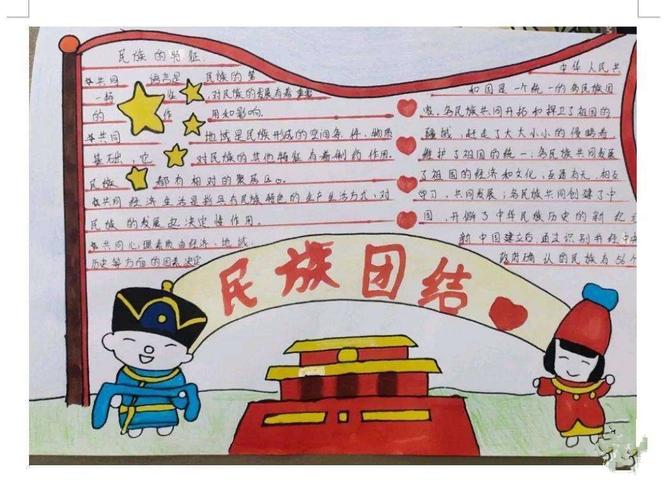 民族的特征
共同 民族的
一种 对民族的发展有着重要
的 作用和影响.
共同 地域是民族形成的空间条件,物质
基础,它 对民族的其他特征有着制约作用.
民族 都有相对的聚居区。
共同经济生活是指具有民族特色的生产生活方式,对
民族的发展起决定性作用.
共同心理素质由经济、地域.
历史等方面的因素决定
中华人民共
和国是一个统一的多民族国
家,各民族共同开拓和捍卫了祖国的
疆域,赶走了大大小小的侵略者
维护了祖国的统一,各民族共同发展
了祖国的经济和文化,互通有无,相互
学习,共同发展;各民族共同创造了中
国,开辟了中华民族历史的新纪元
新中国建立后通过识别并经中央
政府确认的民族有56个
民族团结